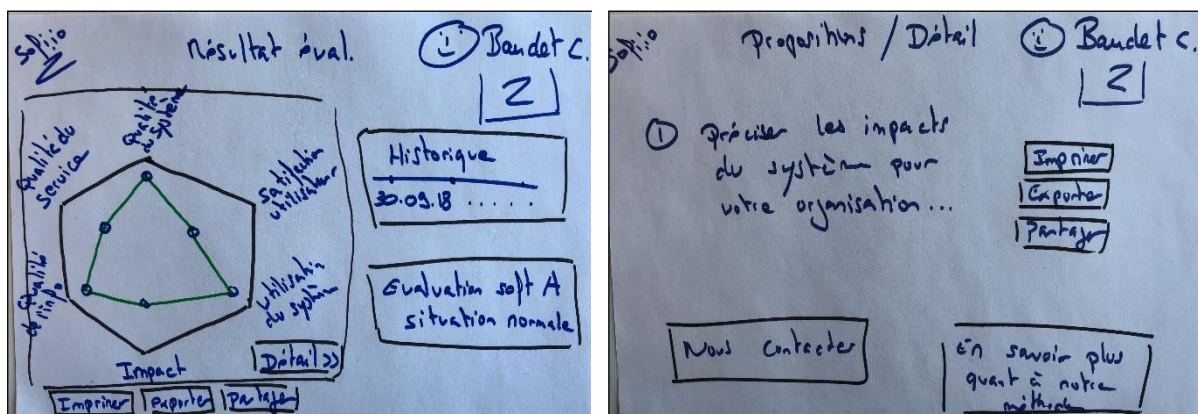 Résultat éval.
Baudet C.
2
Qualité
du système
Qualité du
service
Satisfaction
utilisateur
Qualité
de l'info.
Utilisation
du système
Impact
Détail >>
Imprimer
Exporter
Partager
Historique
30.09.18 . . . . .
Evaluation soft A
situation normale
Propositions / Détail
Baudet C.
2
① Préciser les impacts
du système pour
votre organisation...
Imprimer
Exporter
Partager
Nous contacter
En savoir plus
quant à notre
méthode